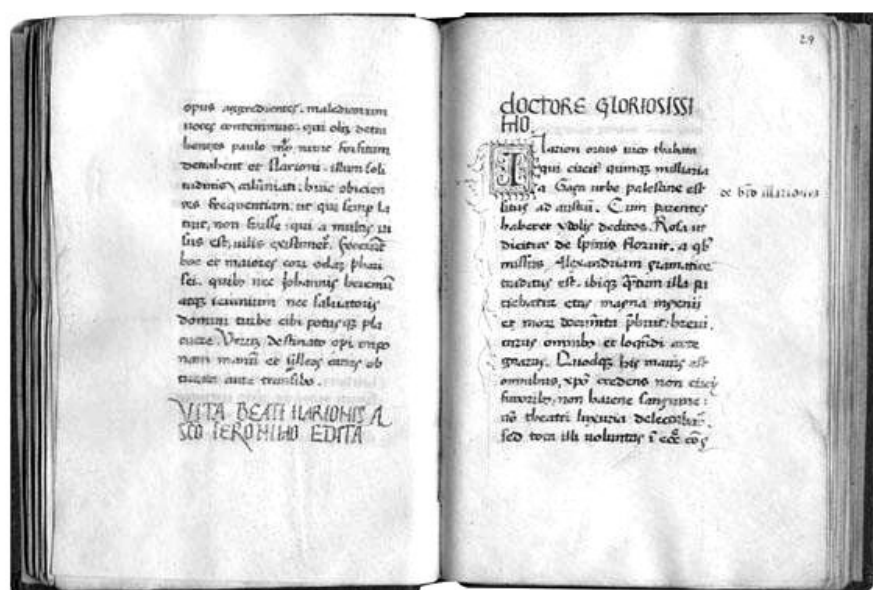 opus aggredientes. maledicorum
uoces contemnimus. qui olim detra
hentes paulo nunc forsitam
detrahent et Ilarioni. illum soli
tudinis calumniati: huic obicien
tes frequentiam: ut qui semp la
tuit, non fuisse: qui a multis ui
sus est, uilis existimet. fecerunt
hoc et maiores eorum phari
sei. quibus nec Johannis heremum
atque ieiunium nec saluatoris
domini turbe cibi potusque pla
cuere. Verum destinato operi inpo
nam manum et canes ob
turata aure transibo.
VITA BEATI ILARIONIS A
SCO IERONIMO EDITA
29
DOCTORE GLORIOSISSI
MO.
Ilarion ortus uico thabata
qui circiter quinque milliaria
a Gaza urbe palestine est
situs ad austrum. Cum parentes
haberet ydolis deditos. Rosa ut
dicitur de spinis floruit. a quibus
missus Alexandriam gramatico
traditus est. ibique illa pa
tiebatur etas magna ingenii
et morum prebuit: breui.
carus omnibus et loquendi arte
gnarus. Quodque his maius est
omnibus, xpo credens non circi
furoribus, non harene sanguine:
non theatri luxuria delectabatur.
sed tota illi uoluntas
de ilarione